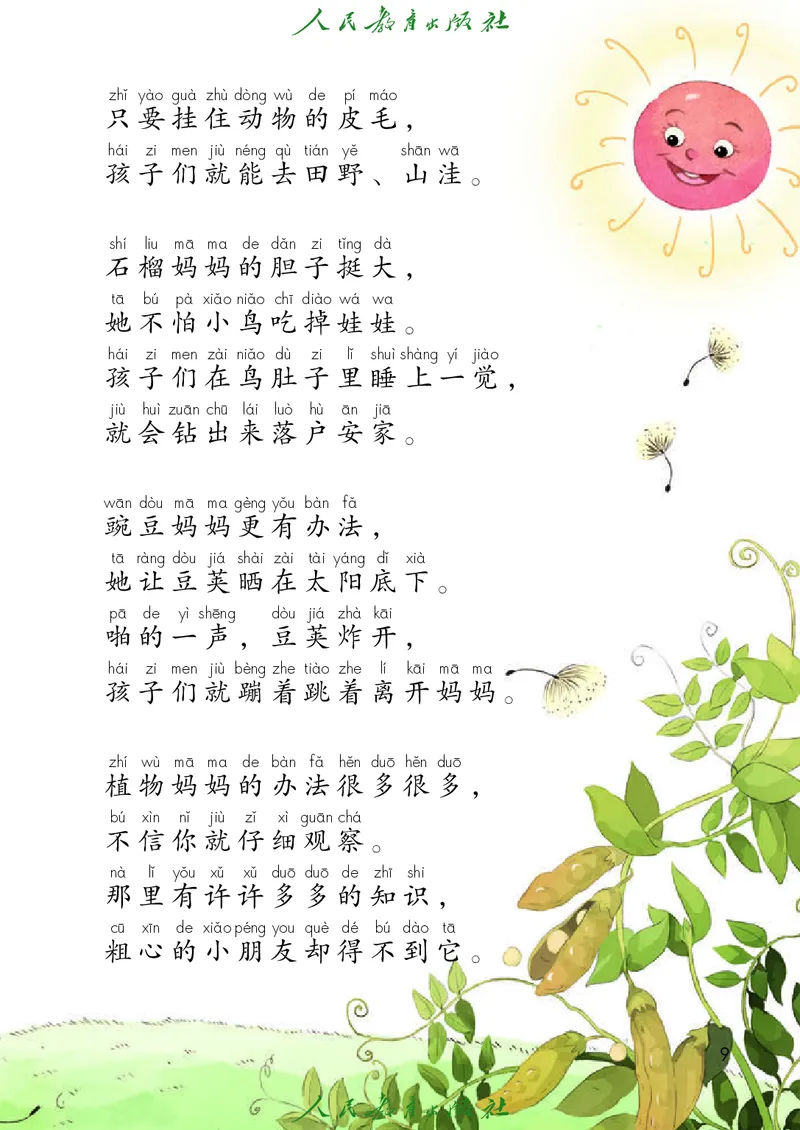 人民教育出版社
zhǐ yào guà zhù dòng wù de pí máo
只要挂住动物的皮毛，
hái zi men jiù néng qù tián yě shān wā
孩子们就能去田野、山洼。
shí liu mā ma de dǎn zi tǐng dà
石榴妈妈的胆子挺大，
tā bú pà xiǎo niǎo chī diào wá wa
她不怕小鸟吃掉娃娃。
hái zi men zài niǎo dù zi lǐ shuì shàng yí jiào
孩子们在鸟肚子里睡上一觉，
jiù huì zuān chū lái luò hù ān jiā
就会钻出来落户安家。
wān dòu mā ma gèng yǒu bàn fǎ
豌豆妈妈更有办法，
tā ràng dòu jiá shài zài tài yáng dǐ xià
她让豆荚晒在太阳底下。
pā de yì shēng dòu jiá zhà kāi
啪的一声，豆荚炸开，
hái zi men jiù bèng zhe tiào zhe lí kāi mā ma
孩子们就蹦着跳着离开妈妈。
zhí wù mā ma de bàn fǎ hěn duō hěn duō
植物妈妈的办法很多很多，
bú xìn nǐ jiù zǐ xì guān chá
不信你就仔细观察。
nà lǐ yǒu xǔ xǔ duō duō de zhī shi
那里有许许多多的知识，
cū xīn de xiǎo péng you què dé bú dào tā
粗心的小朋友却得不到它。
9
人民教育出版社